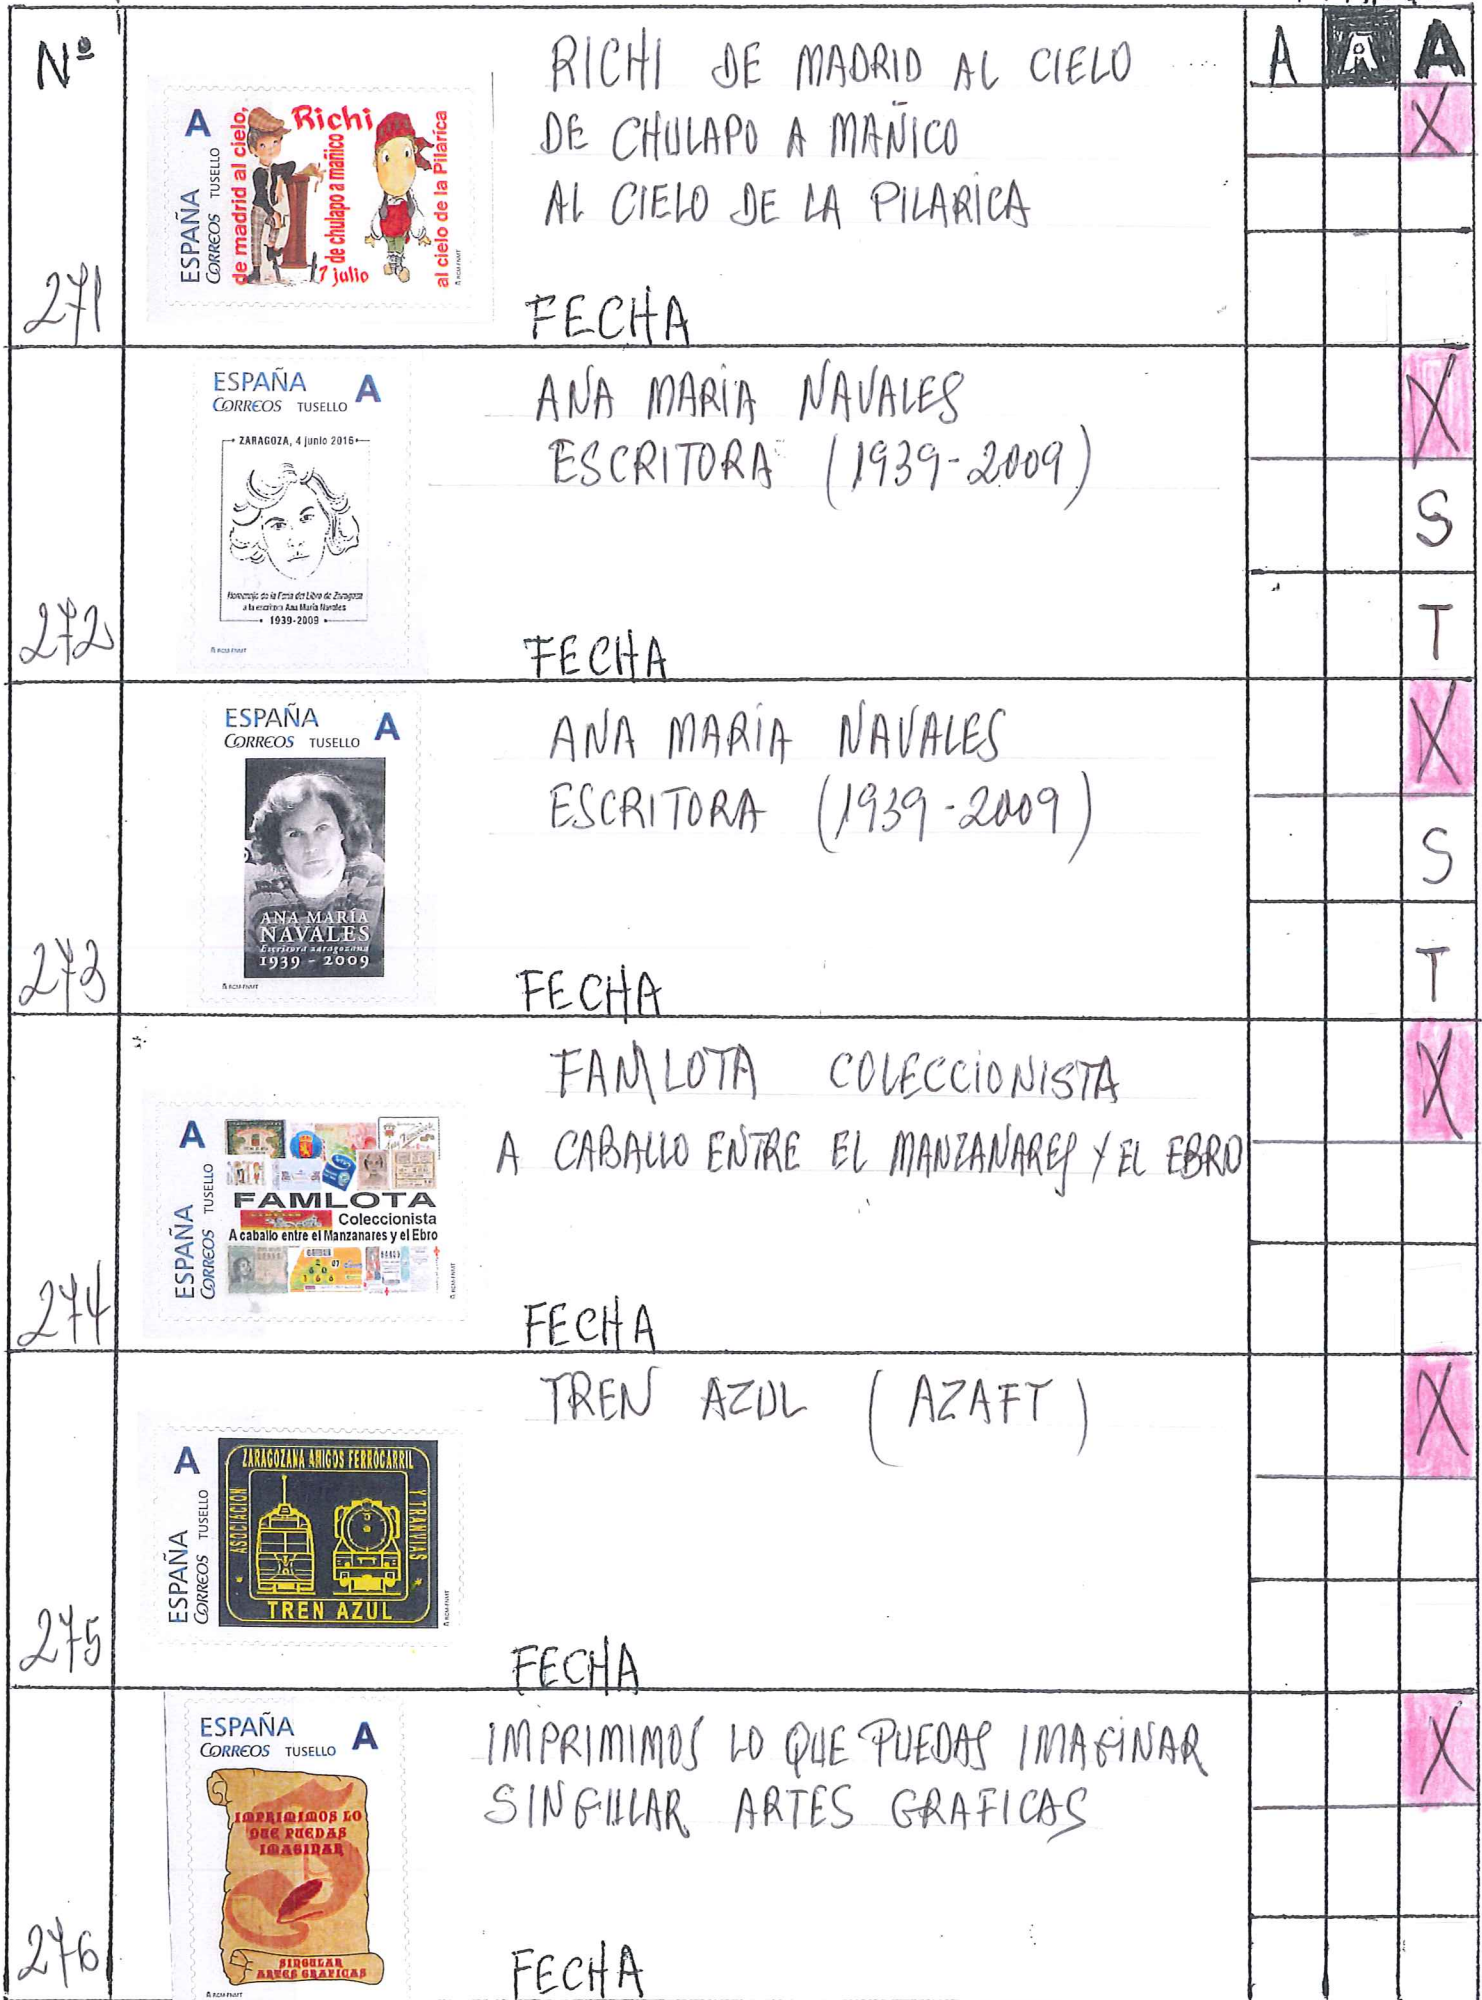 Nº
A A A
A
ESPAÑA
CORREOS TUSELLO
de madrid al cielo,
Richi
de chulapo a mañico
17 julio
al cielo de la Pilarica
RICHI DE MADRID AL CIELO
DE CHULAPO A MAÑICO
AL CIELO DE LA PILARICA
X
271
FECHA
ESPAÑA A
CORREOS TUSELLO
ZARAGOZA, 4 junio 2016
Homenaje de la Feria del Libro de Zaragoza
a la escritora Ana María Navales
1939-2009
ANA MARIA NAVALES
ESCRITORA (1939-2009)
X
S
T
272
FECHA
ESPAÑA A
CORREOS TUSELLO
ANA MARÍA
NAVALES
Escritora zaragozana
1939 - 2009
ANA MARIA NAVALES
ESCRITORA (1939-2009)
X
S
T
273
FECHA
A
ESPAÑA
CORREOS TUSELLO
FAMLOTA
Coleccionista
A caballo entre el Manzanares y el Ebro
FAMLOTA COLECCIONISTA
A CABALLO ENTRE EL MANZANARES Y EL EBRO
X
274
FECHA
A
ESPAÑA
CORREOS TUSELLO
ASOCIACION
ZARAGOZANA AMIGOS FERROCARRIL
Y TRANVIAS
TREN AZUL
TREN AZUL (AZAFT)
X
275
FECHA
ESPAÑA A
CORREOS TUSELLO
IMPRIMIMOS LO
QUE PUEDAS
IMAGINAR
SINGULAR
ARTES GRAFICAS
IMPRIMIMOS LO QUE PUEDAS IMAGINAR
SINGULAR ARTES GRAFICAS
X
276
FECHA